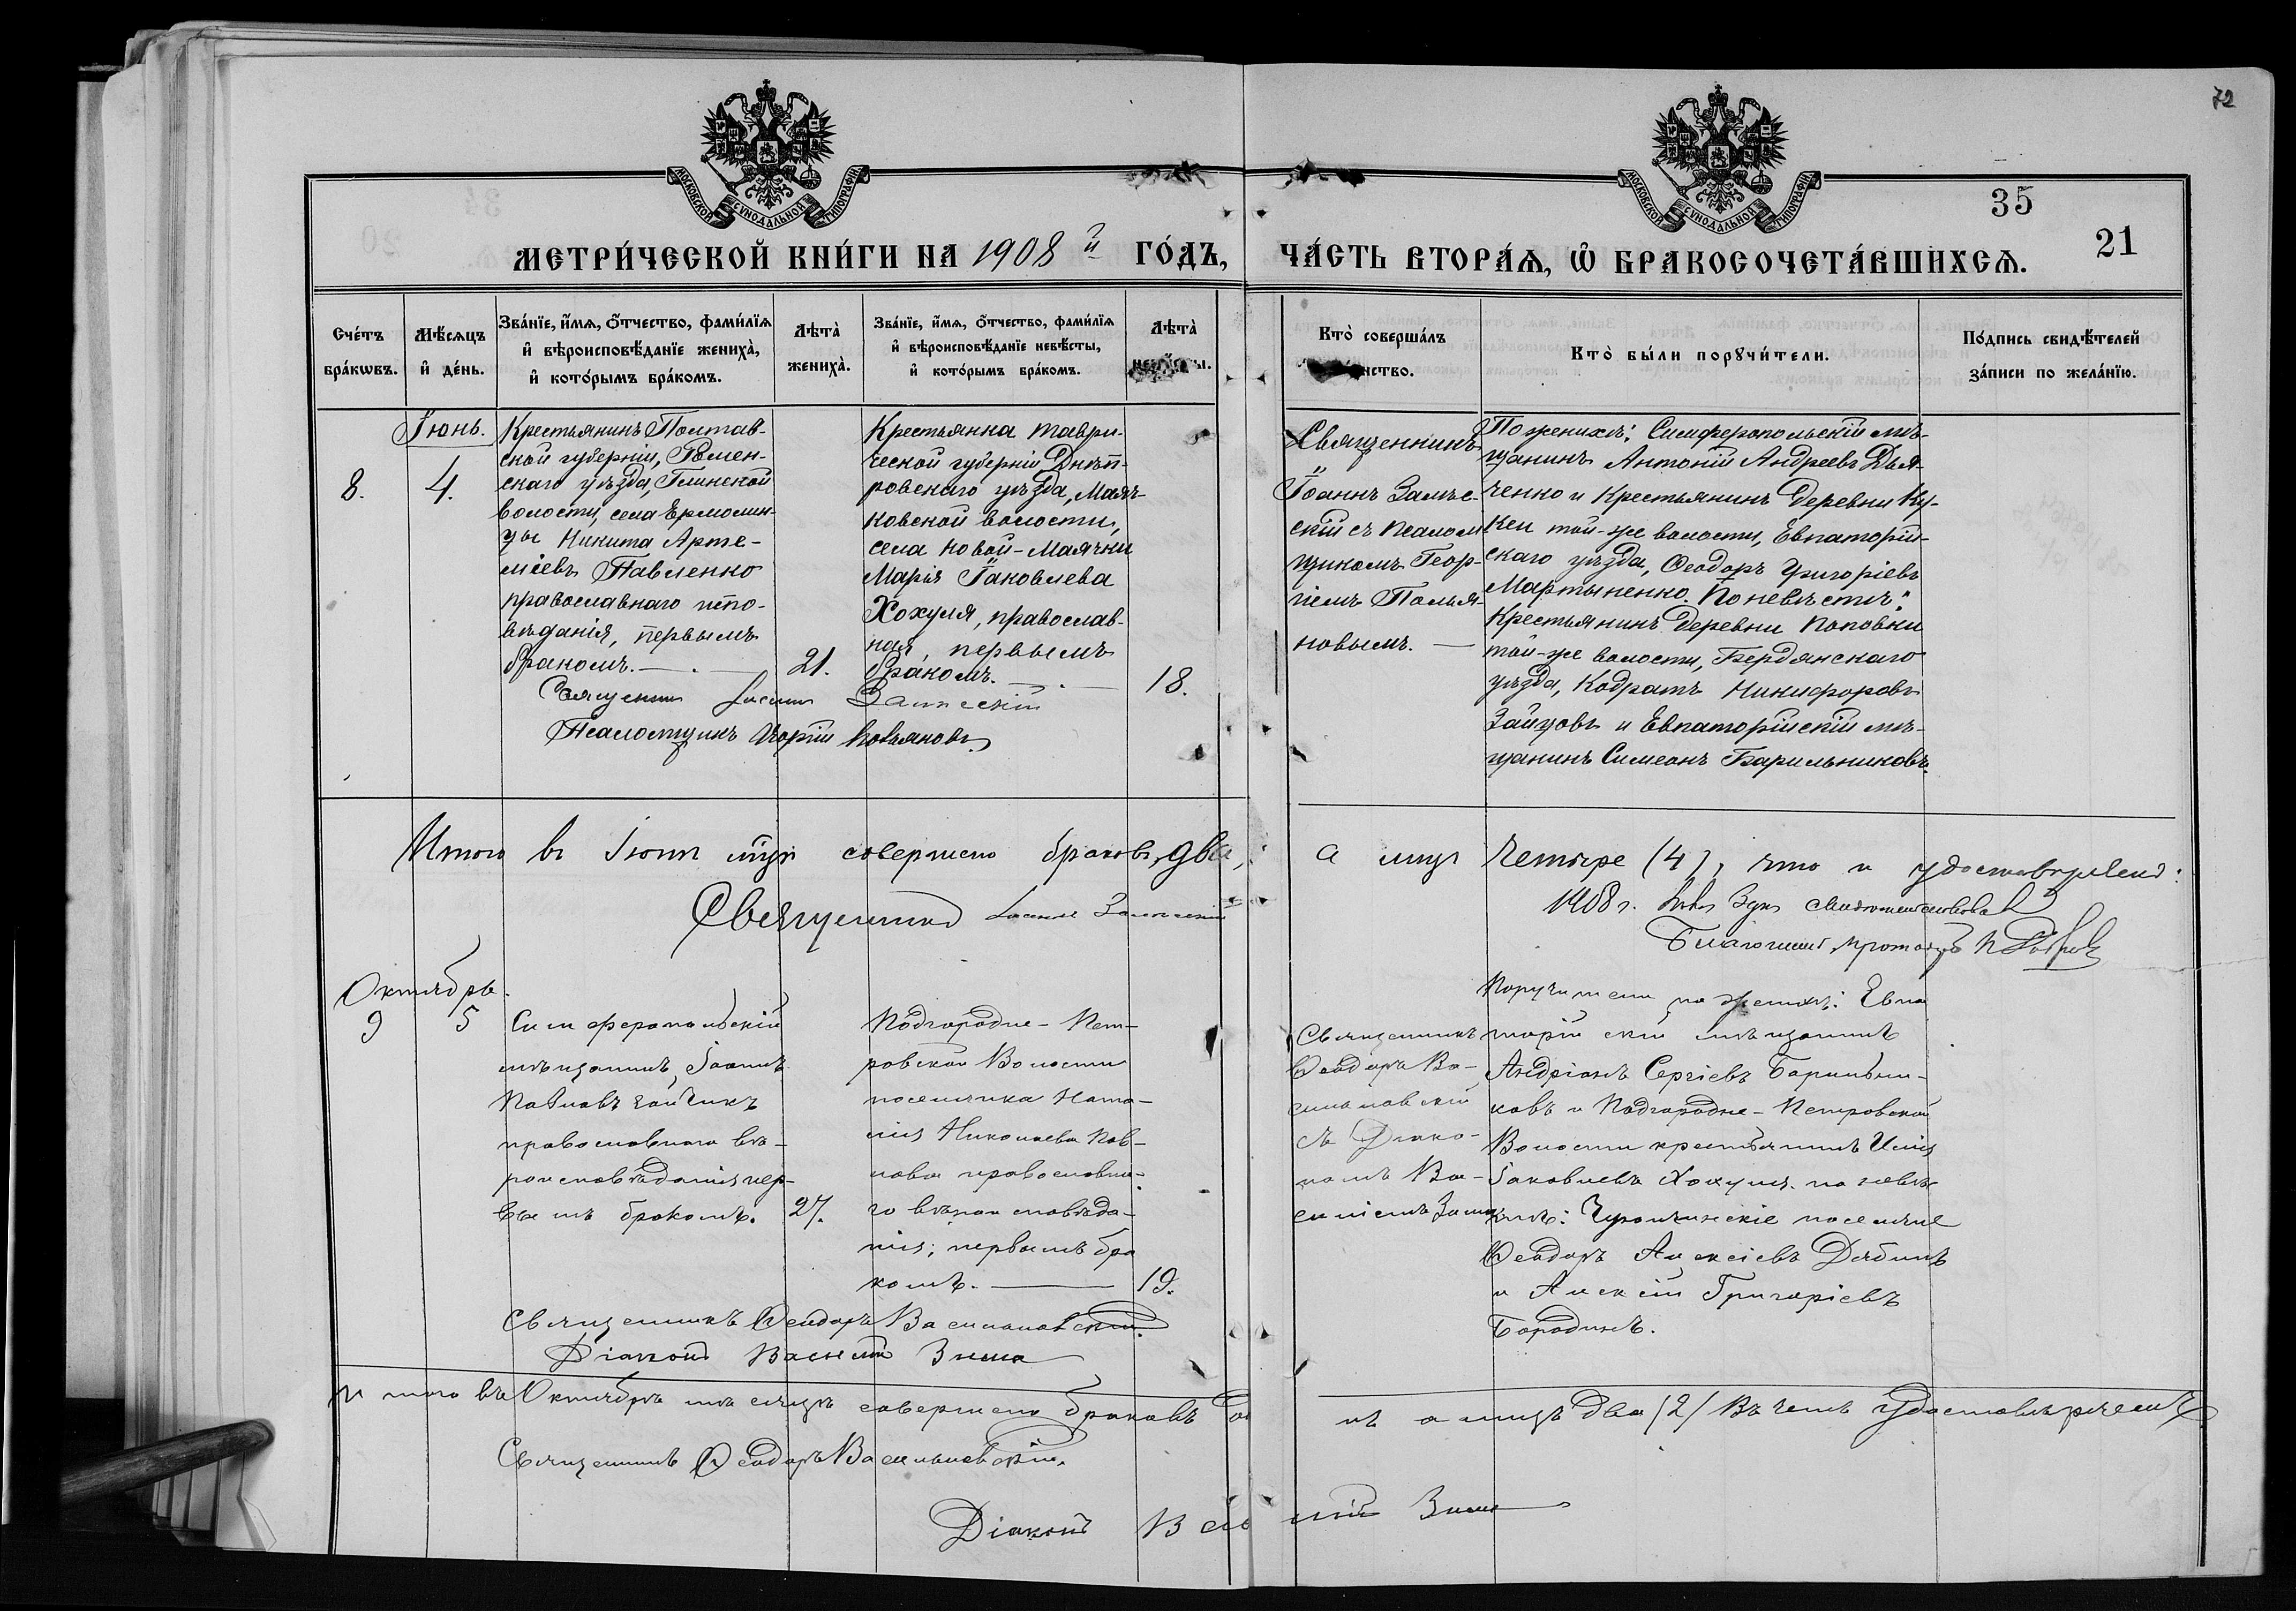 72
МОСКОВСКОЙ СУНОДАЛЬНОЙ ТИПОГРАФІИ
МОСКОВСКОЙ СУНОДАЛЬНОЙ ТИПОГРАФІИ
35
21
МЕТРИ́ЧЕСКОЙ КНИ́ГИ НА 1908й ГО́ДЪ,
ЧА́СТЬ ВТОРА́Ѧ, Ѽ БРАКОСОЧЕТА́ВШИХСѦ.
Сче́тъ бра́кωвъ.
Мѣ́сѧцъ и҆ де́нь.
Зва́нїе, и҆́мѧ, ѻ҆́тчество, фами́лїѧ
и҆ вѣроисповѣ́данїе жениха̀,
и҆ кото́рымъ бра́комъ.
Лѣта̀ жениха̀.
Зва́нїе, и҆́мѧ, ѻ҆́тчество, фами́лїѧ
и҆ вѣроисповѣ́данїе невѣ́сты,
и҆ кото́рымъ бра́комъ.
Лѣта̀
Кто̀ соверша́лъ
Кто̀ бы́ли порꙋчи́тели.
По́дпись свидѣ́телей
за́писи по жела́нїю.
8.
Іюнь.
4.
Крестьянинъ Полтав-
ской губерніи, Ромен-
скаго уѣзда, Глинской
волости, села Ермолин-
цы Никита Арте-
міевъ Павленко
православнаго испо-
вѣданія, первымъ
бракомъ. —
21.
Крестьянка Таври-
ческой губерніи Днѣп-
ровскаго уѣзда, Маяч-
ковской волости,
села Новой-Маячки
Марія Іаковлева
Хохуля, православ-
ная, первымъ
бракомъ. —
18.
Священникъ Іоаннъ Залѣсскій
Псаломщикъ Георгій Польяновъ
Священникъ
Іоаннъ Залѣс-
скій съ псалом
щикомъ Геор-
гіемъ Полья-
новымъ. —
По женихѣ: Симферопольскій мѣ-
щанинъ Антоній Андреевъ Дья-
ченко и крестьянинъ деревни Ку-
кеи той-же волости, Евпаторій-
скаго уѣзда, Ѳеодоръ Григоріевъ
Мартыненко. По невѣстѣ:
Крестьянинъ деревни Поповки
той-же волости, Бердянскаго
уѣзда, Кодратъ Никифоровъ
Зайцовъ и Евпаторійскій мѣ-
щанинъ Симеонъ Барильниковъ.
Итого въ Іюнѣ мцѣ совершено браковъ два,
а лицъ четыре (4), что и удостовѣряемъ:
Священникъ Іоаннъ Залѣсскій
1908 г. свидѣтельствовалъ
Благочин. протоіерей
Октябрь.
9
5
Симферопольскій
мѣщанинъ, Іоаннъ
Павловъ Зайчикъ
православнаго вѣ-
роисповѣданія пер-
вымъ бракомъ.
27.
Подгородне-Пет-
ровской Волости
поселянка Ната-
лія Николаева Пав-
лова православна-
го вѣроисповѣда-
нія; первымъ бра
комъ. —
19.
Священникъ Ѳеодоръ Васильковскій.
Діаконъ Василій Зима
Священникъ
Ѳеодоръ Ва-
сильковскій
съ Діако-
номъ Ва-
силіемъ Зима
Поручители по женихѣ: Евпа
торійскій мѣщанинъ
Андріанъ Сергіевъ Барильни-
ковъ и Подгородне-Петровской
Волости крестьянинъ Илія
Іаковлевъ Хохуля. по невѣс
тѣ: поселяне
Ѳеодоръ Алексіевъ Дябинъ
и Алексій Григоріевъ
Бородинъ.
Итого въ Октябрѣ мѣсяцѣ совершено браковъ
нъ а лицъ два (2) въ чемъ удостовѣряемъ
Священникъ Ѳеодоръ Васильковскій.
Діаконъ Василій Зима